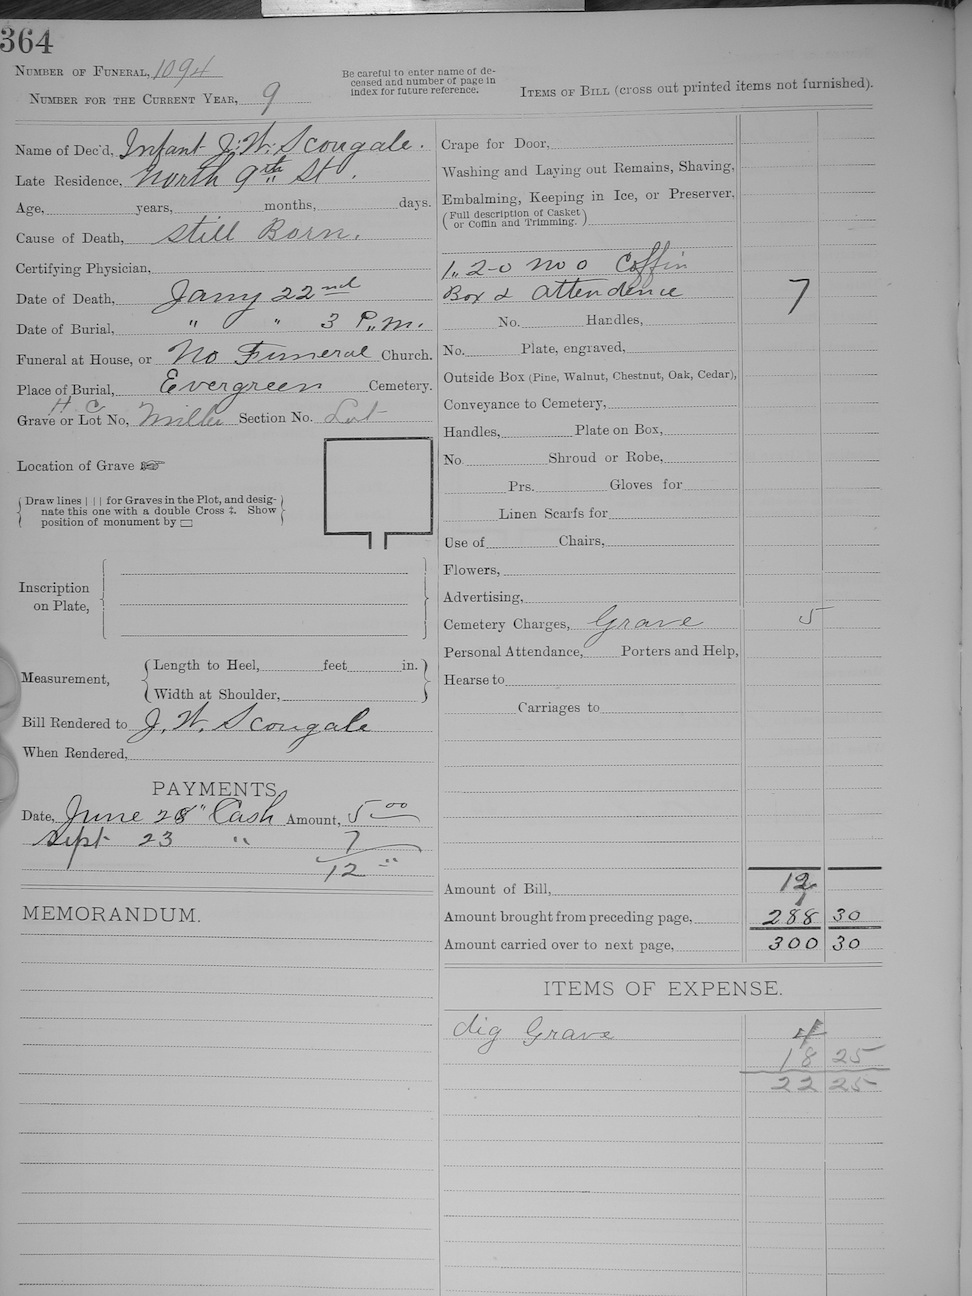 364
NUMBER OF FUNERAL, 1094
NUMBER FOR THE CURRENT YEAR, 9
Be careful to enter name of de-
ceased and number of page in
index for future reference.
ITEMS OF BILL (cross out printed items not furnished).
Name of Dec'd, Infant J. W. Scougale.
Late Residence, North 9th St.
Age, years, months, days.
Cause of Death, Still Born.
Certifying Physician,
Date of Death, Jany 22nd
Date of Burial, " " 3 P.M.
Funeral at House, or No Funeral Church.
Place of Burial, Evergreen Cemetery.
H C
Grave or Lot No, Miller Section No. Lot
Location of Grave ☞
Draw lines | | | for Graves in the Plot, and desig-
nate this one with a double Cross ‡. Show
position of monument by ▭
Inscription
on Plate,
Measurement,
Length to Heel, feet in.
Width at Shoulder,
Bill Rendered to J. W. Scougale
When Rendered,
PAYMENTS
Date, June 28" Cash Amount, 5 00
Sept 23 " 7
12 "
MEMORANDUM.
Crape for Door,
Washing and Laying out Remains, Shaving,
Embalming, Keeping in Ice, or Preserver,
(Full description of Casket
or Coffin and Trimming.)
1,, 2-0 No 0 Coffin
Box & Attendence 7
No. Handles,
No. Plate, engraved,
Outside Box (Pine, Walnut, Chestnut, Oak, Cedar),
Conveyance to Cemetery,
Handles, Plate on Box,
No. Shroud or Robe,
Prs. Gloves for
Linen Scarfs for
Use of Chairs,
Flowers,
Advertising,
Cemetery Charges, Grave 5
Personal Attendance, Porters and Help,
Hearse to
Carriages to
Amount of Bill, 12
Amount brought from preceding page, 288 30
Amount carried over to next page, 300 30
ITEMS OF EXPENSE.
dig Grave 4
18 25
22 25